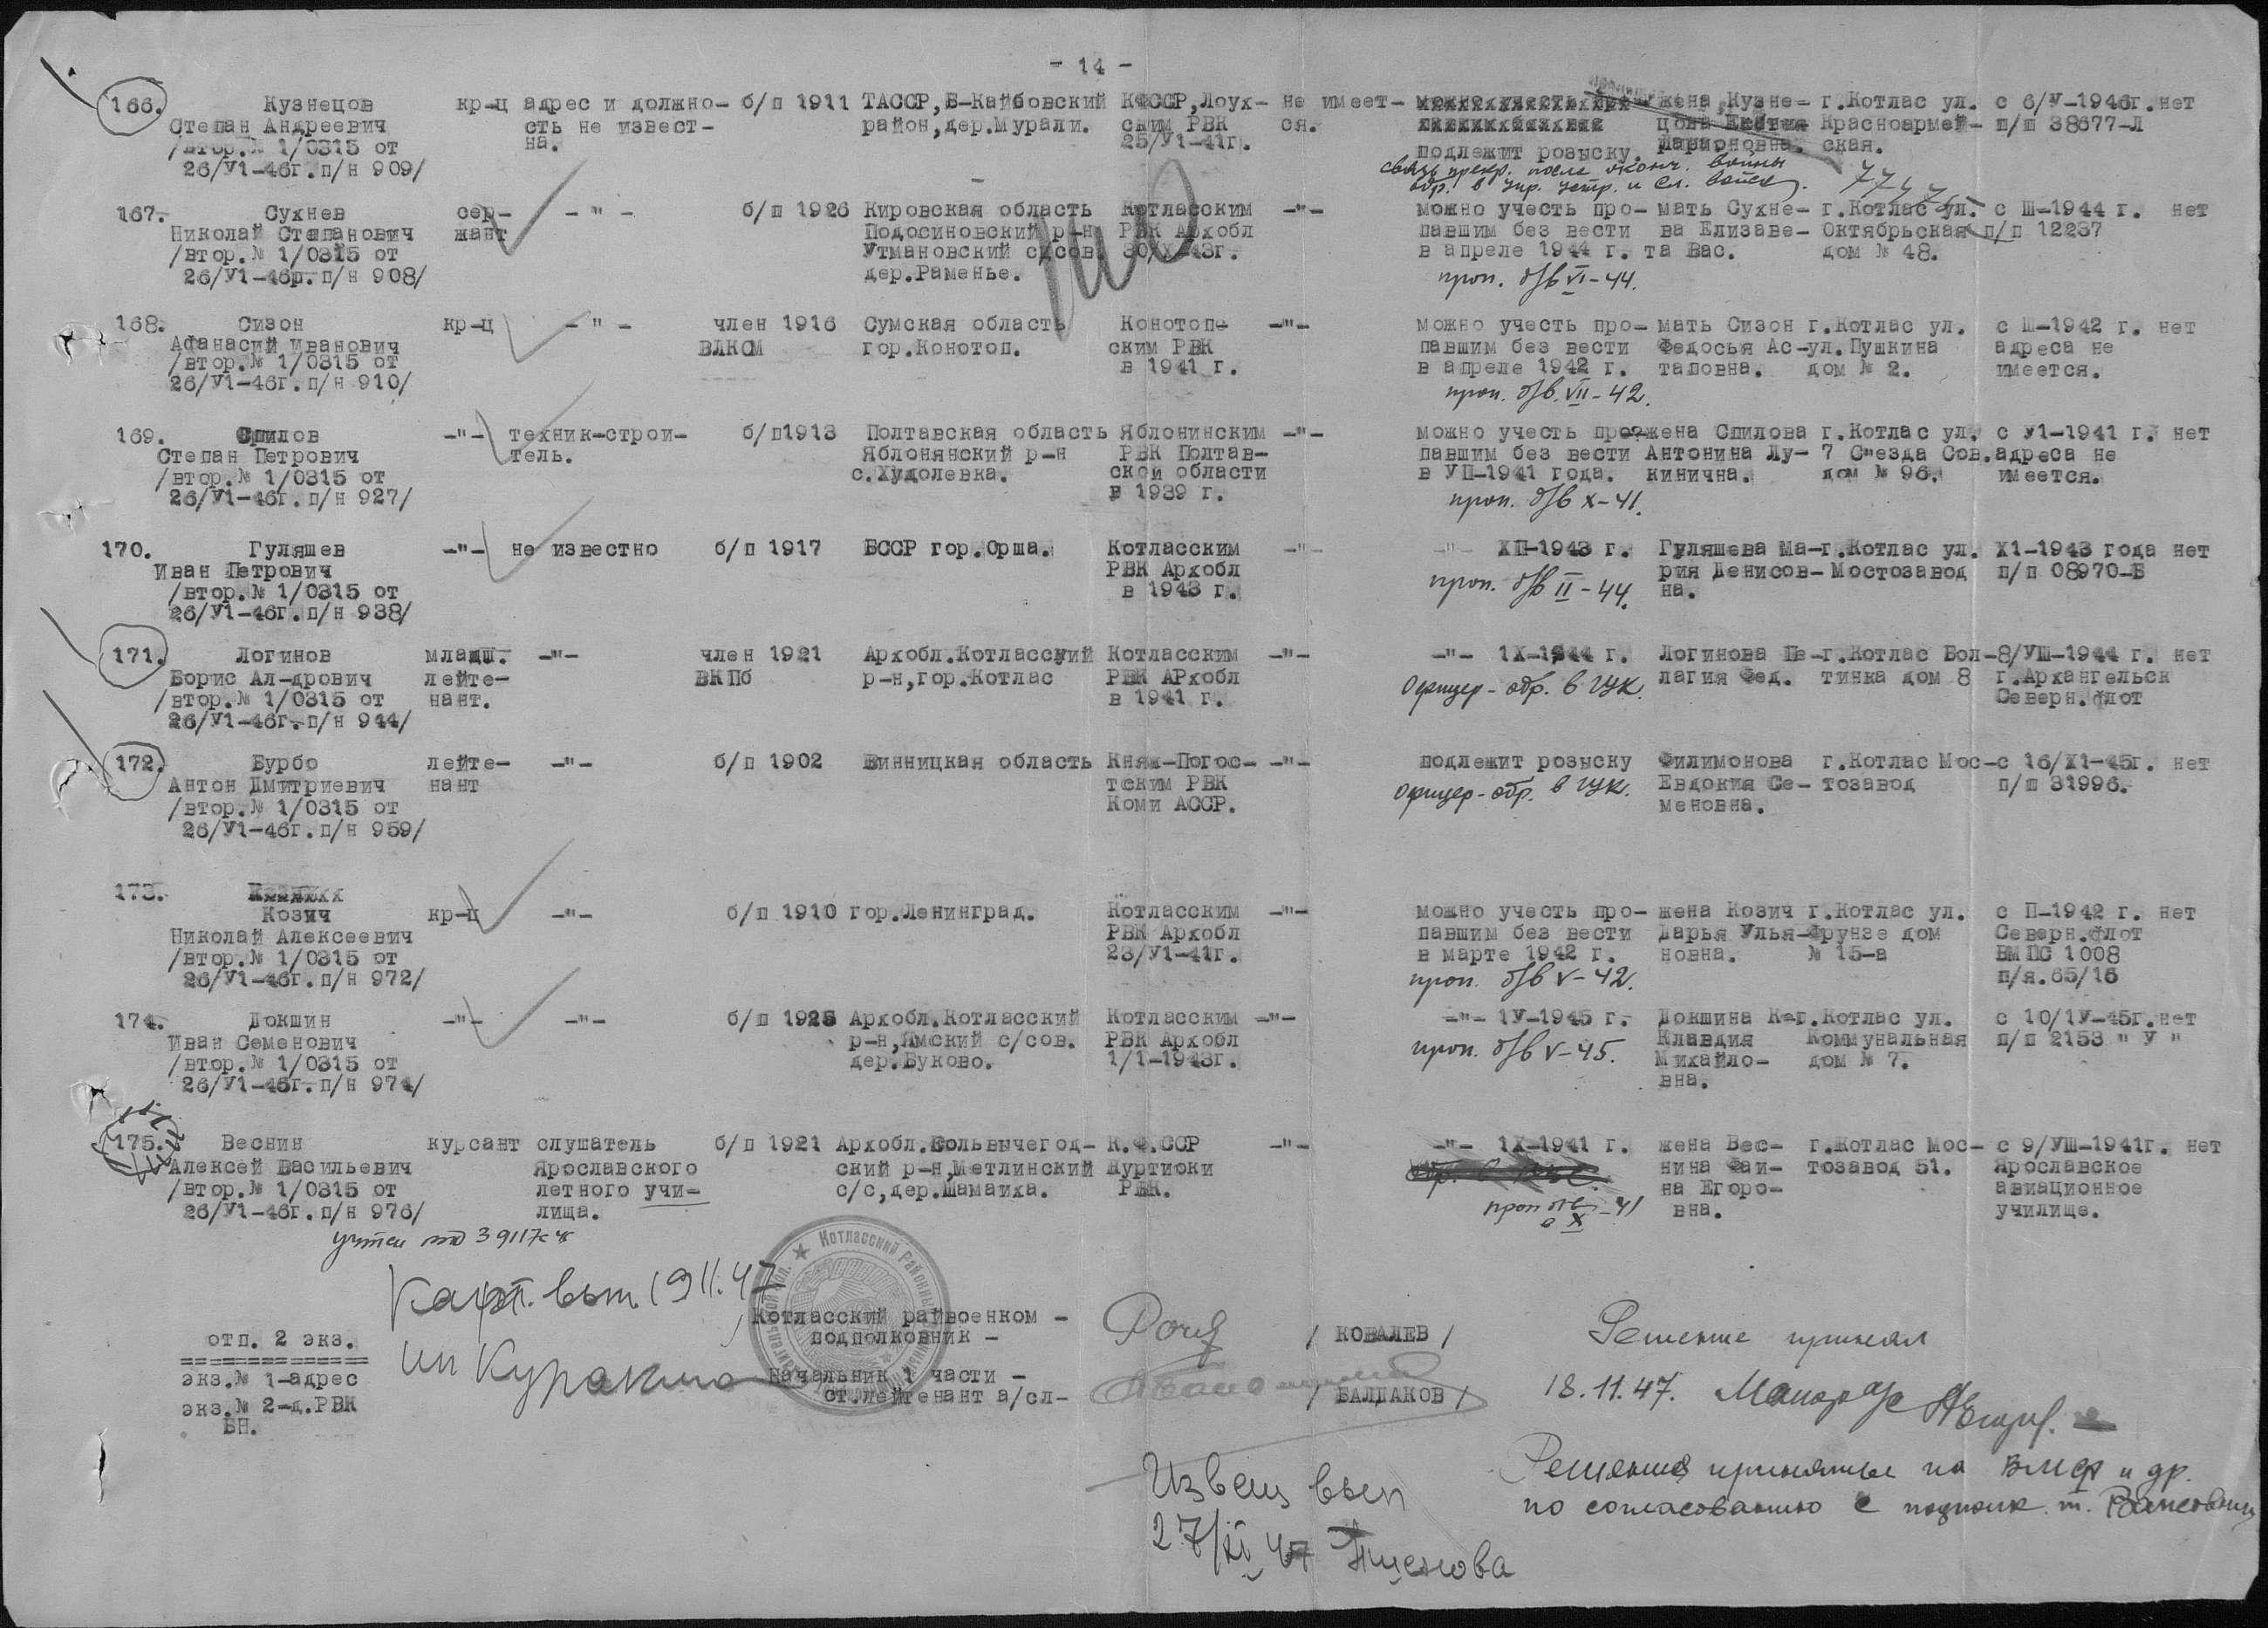 - 14 -
166. Кузнецов кр-ц адрес и должно- б/п 1911 ТАССР,Б-Кайбовский КФССР,Лоух- не имеет- жена Кузне- г.Котлас ул. с 6/У-1946г. нет
Степан Андреевич сть не извест- район,дер.Мурали. ским РВК ся. цова Красноармей- п/п 38677-Л
/втор.№ 1/0315 от на. 25/У1-41г. Ларионовна. ская.
26/У1-46г.п/н 909/ подлежит розыску.
связь прекр. после оконч. войны
обр. в упр. устр. и сл. войск.
167. Сухнев сер- -"- б/п 1926 Кировская область Котласским -"- можно учесть про- мать Сухне- г.Котлас ул. с Ш-1944 г. нет
Николай Степанович жант Подосиновский р-н РВКАрхобл павшим без вести ва Елизаве- Октябрьская п/п 12237
/втор.№ 1/0315 от Утмановский с/сов. 30/Х-43г. в апреле 1944 г. та Вас. дом № 48.
26/У1-46г.п/н 908/ дер.Раменье. проп. б/в VI-44.
168. Сизон кр-ц -"- член 1916 Сумская область Конотоп- -"- можно учесть про- мать Сизон г.Котлас ул. с Ш-1942 г. нет
Афанасий Иванович ВЛКСМ гор.Конотоп. ским РВК павшим без вести Федосья Ас- ул.Пушкина адреса не
/втор.№ 1/0315 от в 1941 г. в апреле 1942 г. таповна. дом № 2. имеется.
26/У1-46г.п/н 910/ проп. б/в. VII-42.
169. Спилов -"- техник-строи- б/п1913 Полтавская область Яблонинским -"- можно учесть про- жена Спилова г.Котлас ул. с У1-1941 г. нет
Степан Петрович тель. Яблонянский р-н РВК Полтав- павшим без вести Антонина Лу- 7 Съезда Сов. адреса не
/втор.№ 1/0315 от с.Худолевка. ской области в УП-1941 года. кинична. дом № 96. имеется.
26/У1-46г.п/н 927/ в 1939 г. проп. б/в X-41.
170. Гуляшев -"- не известно б/п 1917 БССР гор.Орша. Котласским -"- -"- ХП-1943 г. Гуляшева Ма- г.Котлас ул. Х1-1943 года нет
Иван Петрович РВК Архобл рия Денисов- Мостозавод п/п 08970-Б
/втор.№ 1/0315 от в 1943 г. проп. б/в II-44. на.
26/У1-46г.п/н 938/
171. Логинов младш. -"- член 1921 Архобл.Котласский Котласским -"- -"- 1Х-1944 г. Логинова Пе- г.Котлас Бол- 8/УШ-1944 г. нет
Борис Ал-дрович лейте- ВКПб р-н,гор.Котлас РВК АРхобл лагия Фед. тинка дом 8 г.Архангельск
/втор.№ 1/0315 от нант. в 1941 г. Офицер - обр. в ГУК. Северн.флот
26/У1-46г.п/н 944/
172. Бурбо лейте- -"- б/п 1902 Винницкая область Княж-Погос- -"- подлежит розыску Филимонова г.Котлас Мос- с 16/Х1-45г. нет
Антон Дмитриевич нант тским РВК Офицер - обр. в ГУК. Евдокия Се- тозавод п/п 31996.
/втор.№ 1/0315 от Коми АССР. меновна.
26/У1-46г.п/н 959/
173.
Козич кр-ц -"- б/п 1910 гор.Ленинград. Котласским -"- можно учесть про- жена Козич г.Котлас ул. с П-1942 г. нет
Николай Алексеевич РВК Архобл павшим без вести Дарья Улья- Фрунзе дом Северн.флот
/втор.№ 1/0315 от 23/У1-41г. в марте 1942 г. новна. № 15-а ВМПС 1008
26/У1-46г.п/н 972/ проп. б/в V-42. п/я.65/16
174. Докшин -"- -"- б/п 1925 Архобл.Котласский Котласским -"- -"- 1У-1945 г. Докшина К-г.Котлас ул. с 10/1У-45г. нет
Иван Семенович р-н,Ямский с/сов. РВК Архобл проп. б/в V-45. Клавдия Коммунальная п/п 2153 " У "
/втор.№ 1/0315 от дер.Буково. 1/1-1943г. Михайло- дом № 7.
26/У1-46г.п/н 974/ вна.
175. Веснин курсант слушатель б/п 1921 Архобл.Сольвычегод- К.Ф.ССР -"- -"- 1Х-1941 г. жена Вес- г.Котлас Мос- с 9/УШ-1941г. нет
Алексей Васильевич Ярославского ский р-н,Метлинский Нуртиоки нина Фаи- тозавод 51. Ярославское
/втор.№ 1/0315 от летного учи- с/с,дер.Шамаиха. РВК. на Егоро- авиационное
26/У1-46г.п/н 976/ лища. проп б/в в X-41 вна. училище.
Карт. вып. 19 11.47
Куракина
Котласский райвоенком -
подполковник - / КОВАЛЕВ /
Начальник 1 части -
ст.лейтенант а/сл- / БАЛДАКОВ /
отп. 2 экз.
=============
экз.№ 1-адрес
экз.№ 2-д.РВК
БН.
Решение принял
18.11.47. Майор а/с
Решения приняты на ВМФ и др.
по согласованию с подполк. т.
Извещ вып
27/XI 47